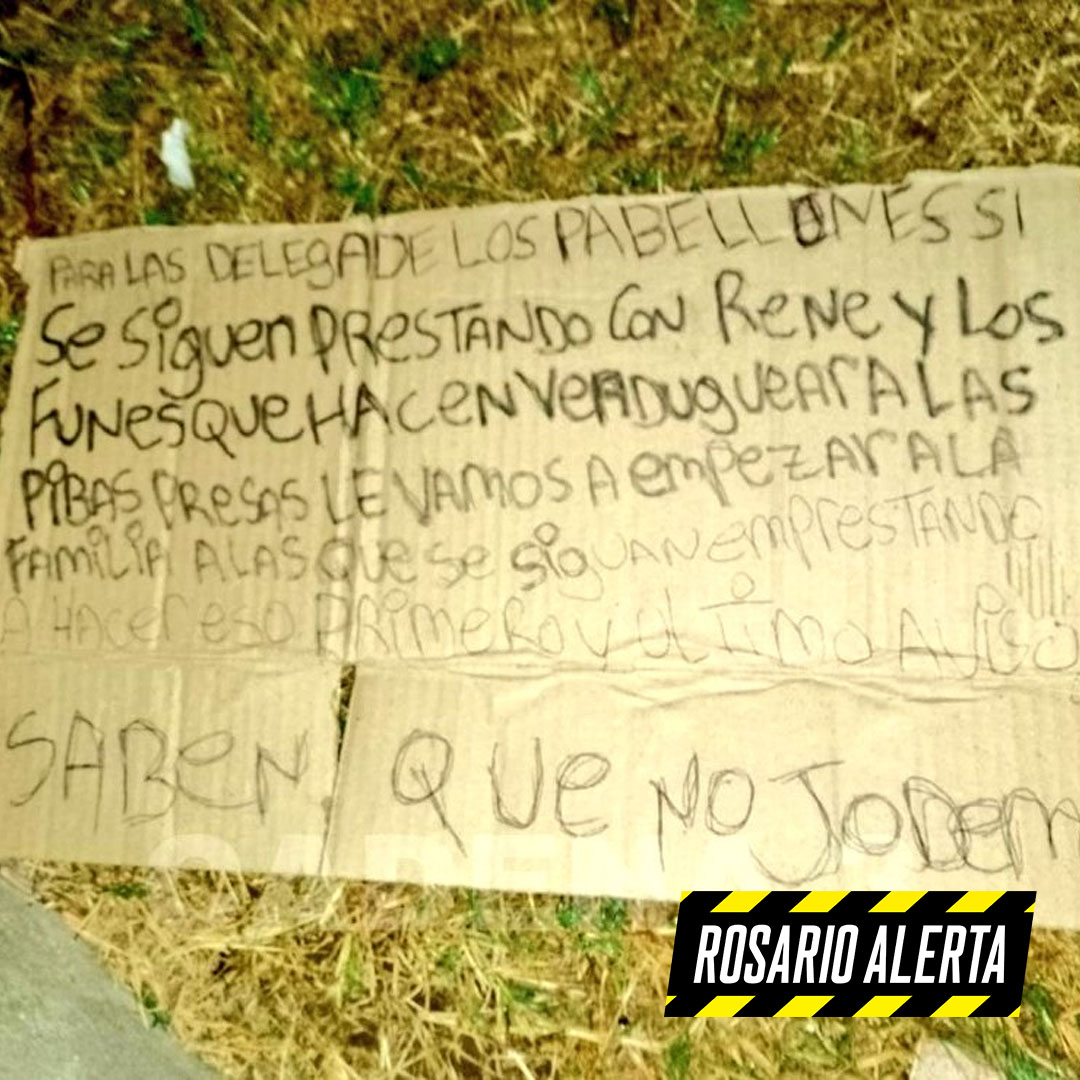 PARA LAS DELEGADE LOS PABELLONES SI
Se SiGuen PResTANDO CoN ReNe y Los
FUNesQUeHACeNVeRDUgUeArALAS
PiBAS PResAS LE VAMOS A emPeZAr ALA
FAMiLiA A LAS QUe Se SiGUAN emPresTANDO
A HACer eso PRiMeRo y ULTiMO AViso
SABeN QUe NO JODem
ROSARIO ALERTA